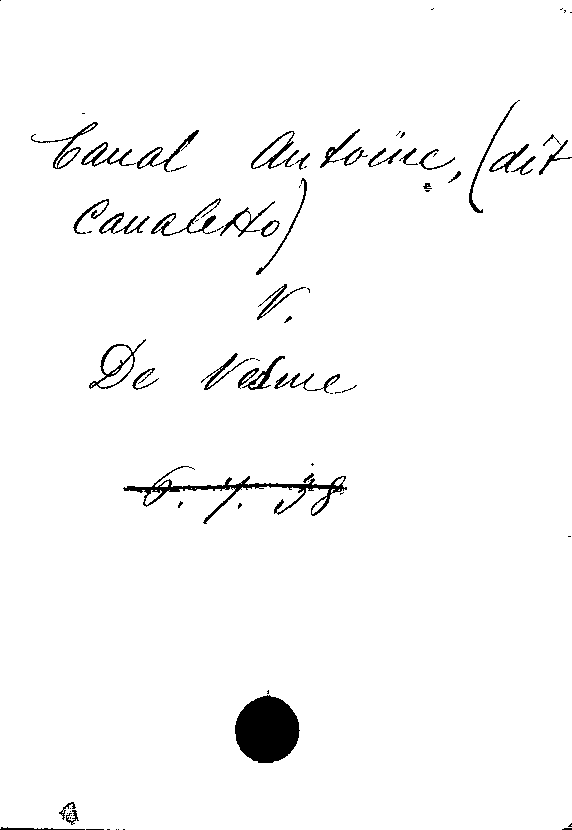 Canal Antoine, (dit
Canaletto)
V.
De Vesme
6. 7. 38